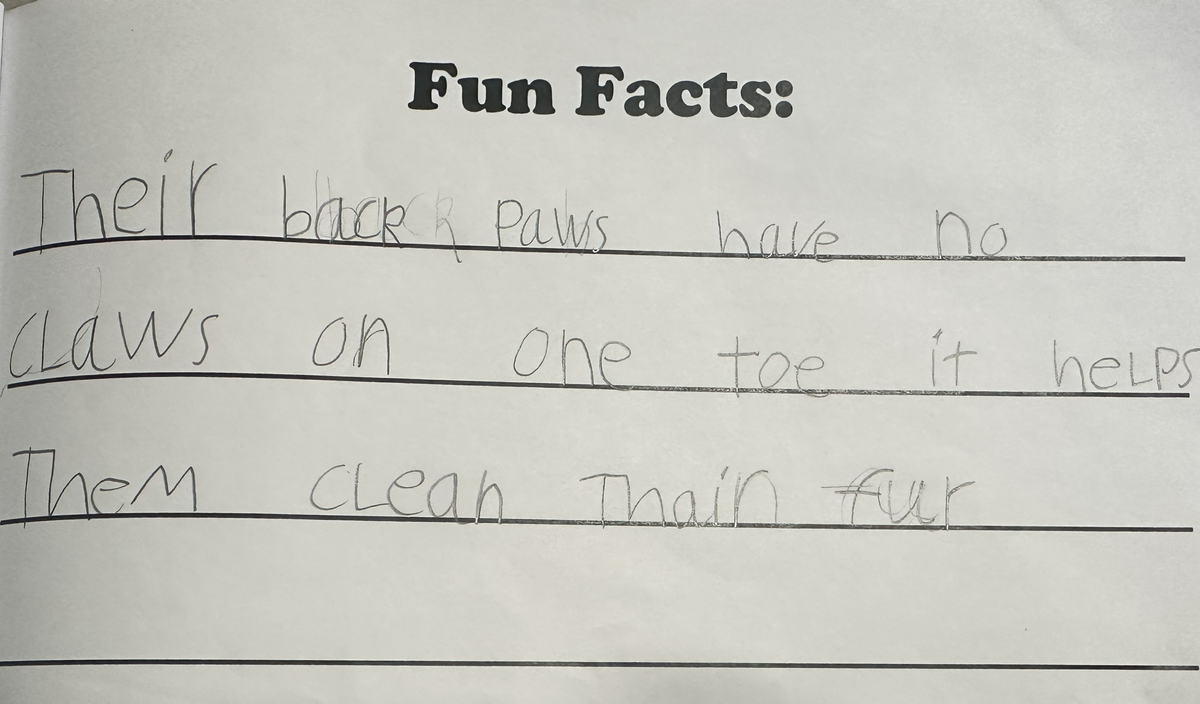 Fun Facts:
Their back paws have no
cLaws on one toe it heLPs
TheM cLean Thain fur